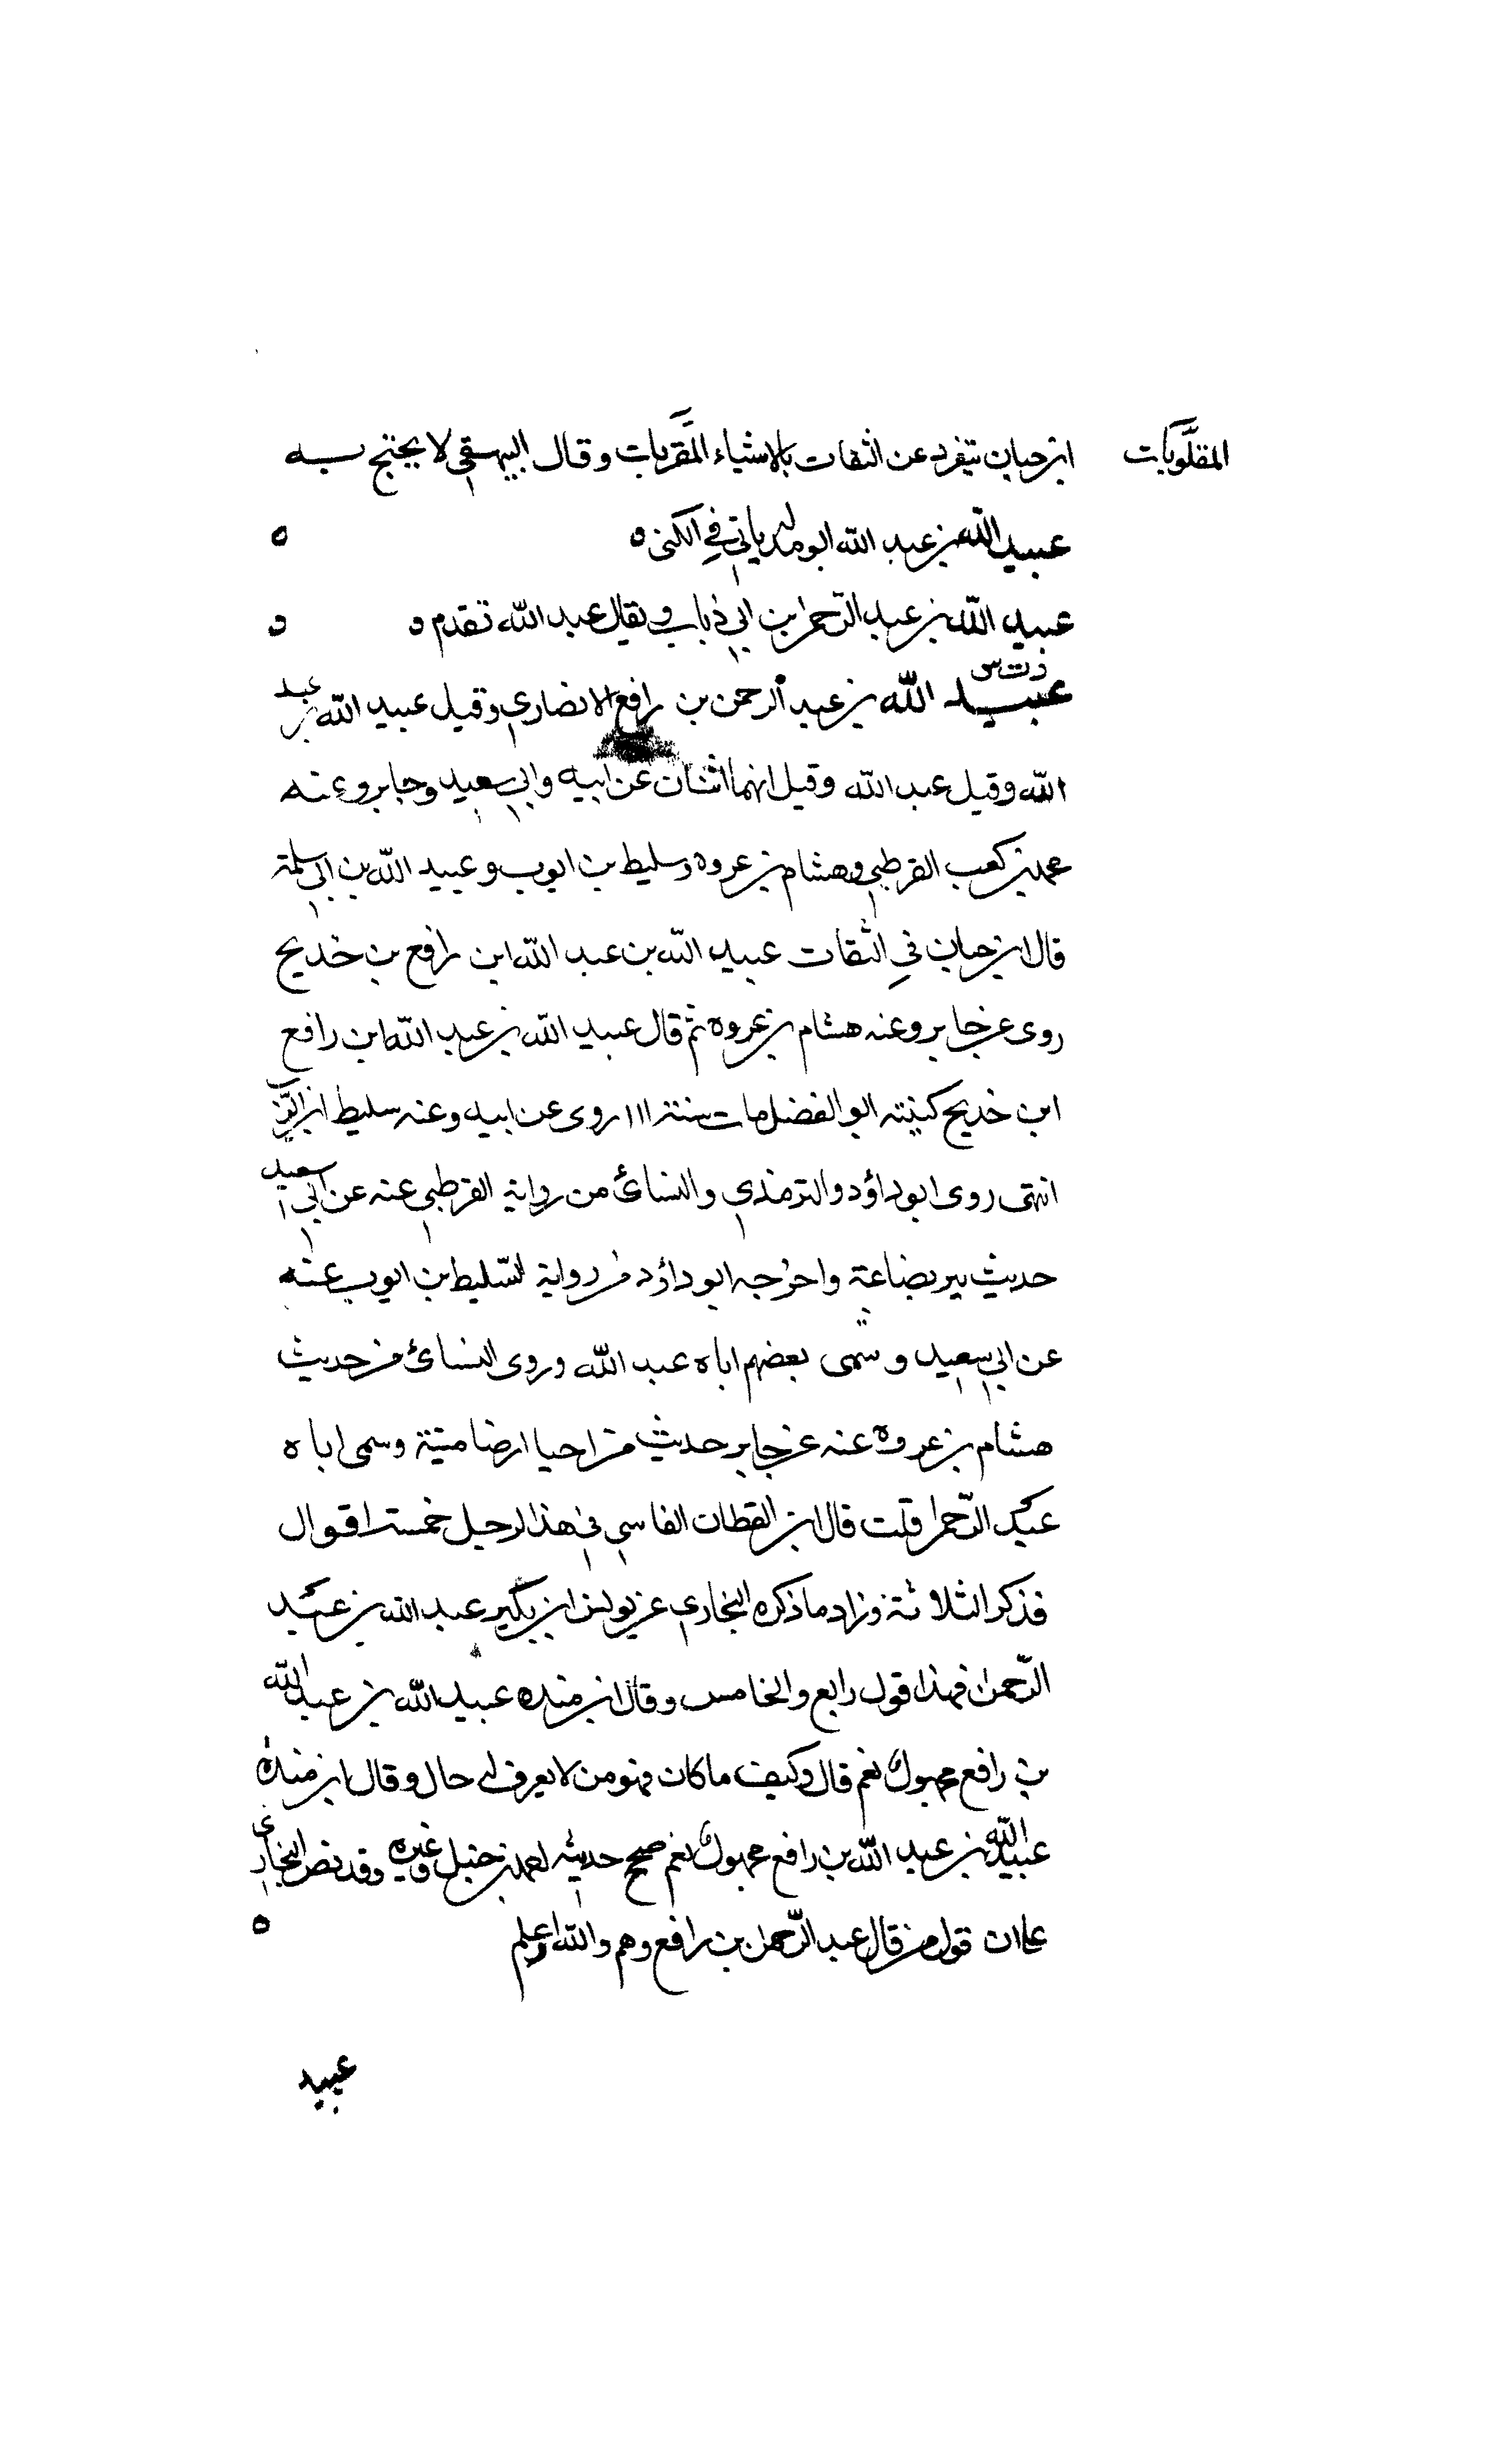 المقلوبات
ابن حبان يتفرد عن الثقات بالاشياء المقربات وقال البيهقي لا يحتج به
عبيد الله بن عبد الله ابو ياتي في الكنى ه
عبيد الله بن عبد الرحمن بن ابي ذباب ويقال عبد الله تقدم ه
د ت س
عبيد الله بن عبد الرحمن بن رافع الانصاري وقيل عبيد الله بن عبد
الله وقيل عبد الله وقيل انهما اثنان عن ابيه وابي سعيد وجابر وعنه
محمد بن كعب القرظي وهشام بن عروه وسليط بن ايوب وعبيد الله بن ابي سلمة
قال ابن حبان في الثقات عبيد الله بن عبد الله ابن رافع بن خديج
روى عن جابر وعنه هشام بن عروه ثم قال عبيد الله بن عبد الله ابن رافع
ابن خديج كنيته ابو الفضل مات سنة ١١١ روى عن ابيه وعنه سليط ابن
انتهى روى ابو داؤد والترمذي والنسائ من رواية القرظي عنه عن ابي سعيد
حديث بير بضاعة واخرجه ابو داؤد من رواية لسليط بن ايوب عنه
عن ابي سعيد وسمى بعضهم اباه عبد الله وروى النسائ من حديث
هشام بن عروه عنه عن جابر حديث من احيا ارضا ميتة وسمى اباه
عبد الرحمن قلت قال ابن القطان الفاسي في هذا الرجل خمسة اقوال
فذكر الثلاثة وزاد ما ذكره البخاري عن يونس ابن بكير عبد الله بن عبد
الرحمن فهذا قول رابع والخامس وقال ابن منده عبيد الله بن عبد الله
بن رافع مجهول نعم قال وكيف ما كان فهو من لا يعرف له حال وقال ابن منده
عبيد الله بن عبد الله بن رافع مجهول نعم صحح حديثه احمد بن حنبل وغيره وقد نص البخاري
على ان قول من قال عبد الرحمن بن رافع وهم والله اعلم
عبيد